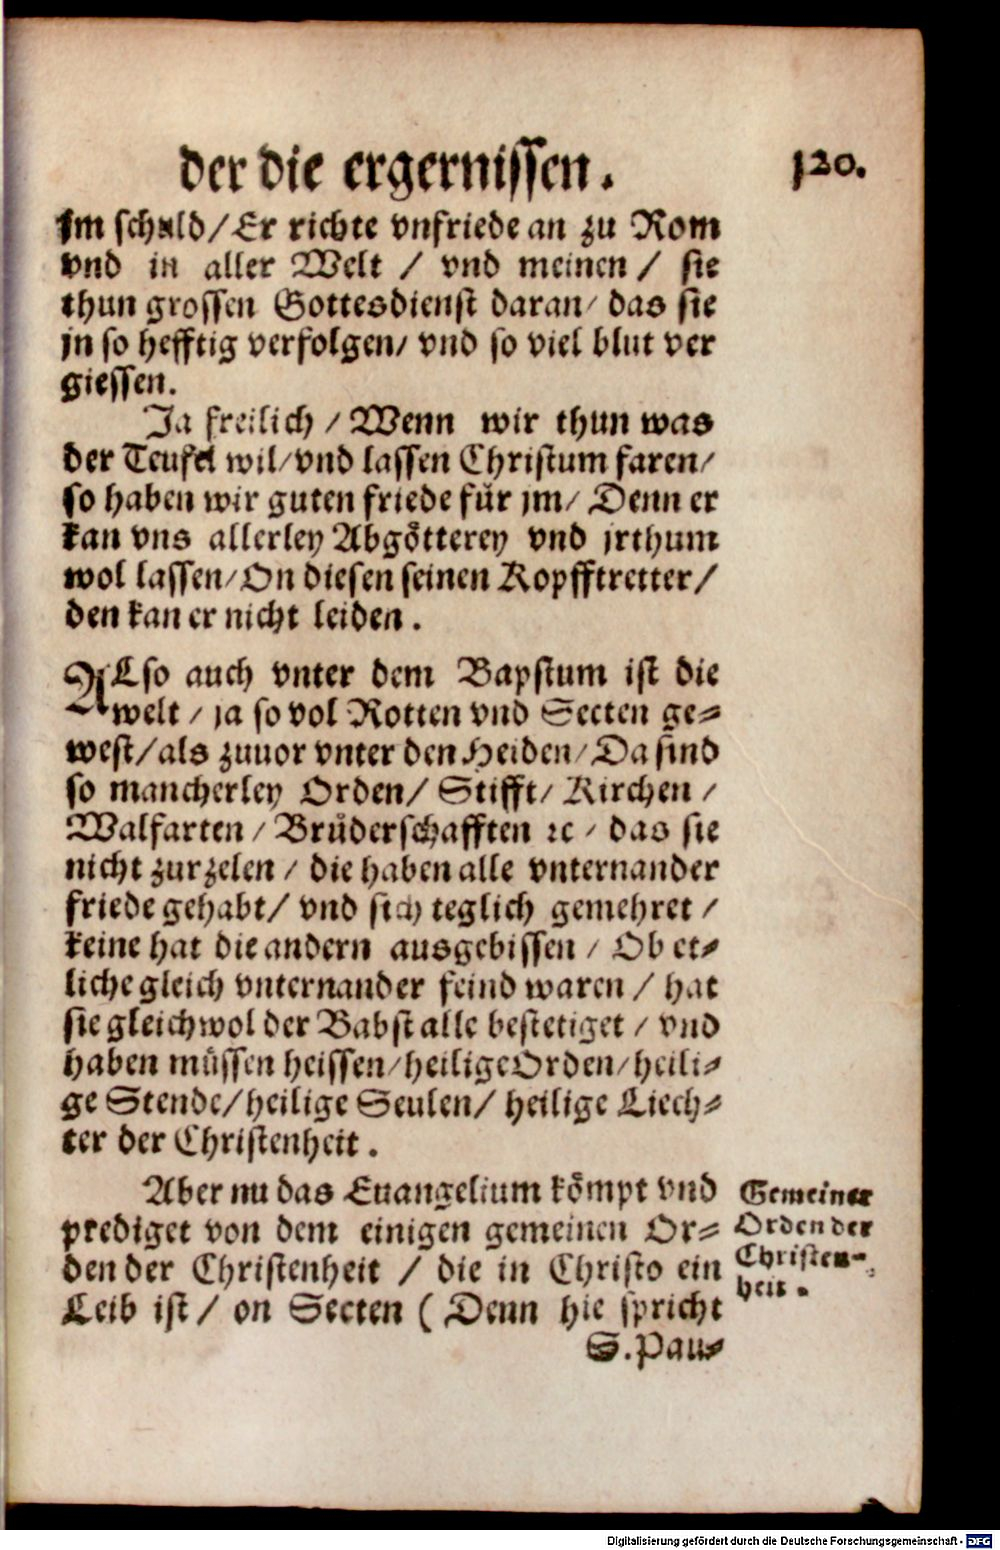 der die ergernissen.
120.
jm schuld/ Er richte vnfriede an zu Rom
vnd in aller Welt / vnd meinen / sie
thun grossen Gottesdienst daran/ das sie
jn so hefftig verfolgen/ vnd so viel blut ver
giessen.
Ja freilich / Wenn wir thun was
der Teufel wil/ vnd lassen Christum faren/
so haben wir guten friede fuͤr jm/ Denn er
kan vns allerley Abgoͤtterey vnd jrthum
wol lassen/ On diesen seinen Kopfftretter/
den kan er nicht leiden.
ALso auch vnter dem Bapstum ist die
welt / ja so vol Rotten vnd Secten ge⸗
west/ als zuuor vnter den Heiden/ Da sind
so mancherley Orden/ Stifft/ Kirchen /
Walfarten / Bruͤderschafften ꝛc / das sie
nicht zurzelen / die haben alle vnternander
friede gehabt/ vnd sich teglich gemehret /
keine hat die andern ausgebissen / Ob et⸗
liche gleich vnternander feind waren / hat
sie gleichwol der Babst alle bestetiget / vnd
haben muͤssen heissen/ heilige Orden/ heili⸗
ge Stende/ heilige Seulen/ heilige Liech⸗
ter der Christenheit.
Aber nu das Euangelium koͤmpt vnd
prediget von dem einigen gemeinen Or⸗
den der Christenheit / die in Christo ein
Leib ist / on Secten ( Denn hie spricht
S. Pau⸗
Gemeiner
Orden der
Christen⸗
heit.
Digitalisierung gefördert durch die Deutsche Forschungsgemeinschaft - DFG